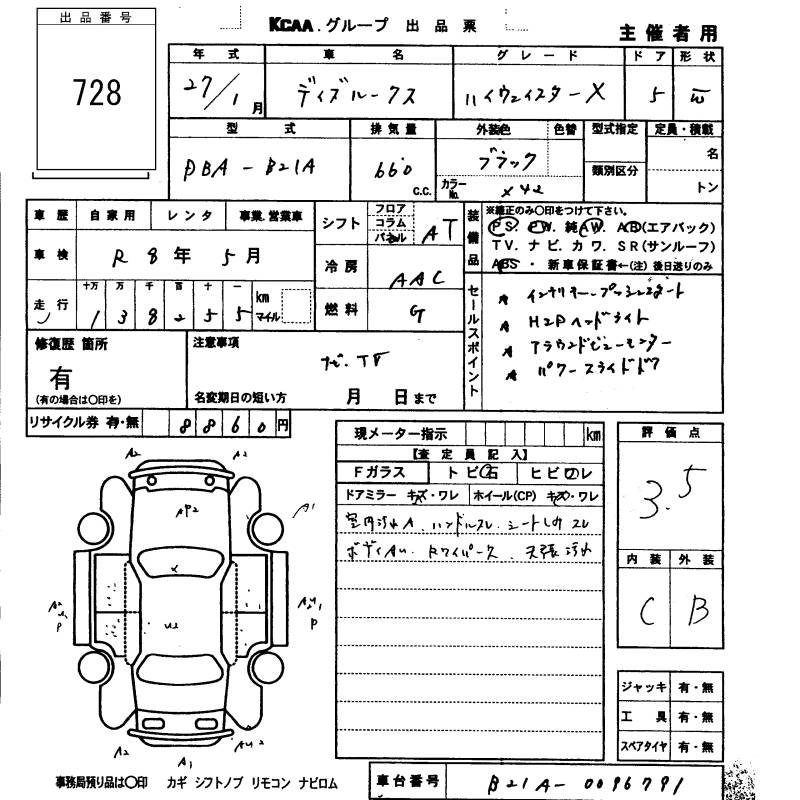 出品番号
728
KCAA.グループ 出品票
主催者用
年式 車名 グレード ドア 形状
27/1月 デイズルークス ハイウェイスターX 5 W
型式 排気量 外装色 色替 型式指定 定員・積載
DBA-B21A 660 c.c. ブラック 類別区分 名
カラーNo. X42 トン
車歴 自家用 レンタ 事業.営業車
シフト フロア コラム パネル AT
装備品
※純正のみ〇印をつけて下さい。
PS. PW. 純AW. AB(エアバック)
TV. ナビ. カワ. SR(サンルーフ)
ABS・新車保証書←(注)後日送りのみ
車検 R8年5月
冷房 AAC
走行 十万 万 千 百 十 一 km マイル
138255
燃料 G
セールスポイント
インテリキー.プッシュスタート
HIDヘッドライト
アラウンドビューモニター
パワースライドドア
修復歴 箇所
有
(有の場合は〇印を)
注意事項
ナビ.TV
名変期日の短い方 月 日まで
リサイクル券 有・無 8860円
現メーター指示 km
【査定員記入】
Fガラス トビ石 ヒビワレ
ドアミラー キズ・ワレ ホイール(CP) キズ・ワレ
室内汚れA. ハンドルスレ. シートしみ スレ
ボディAU. Rワイパーズ. 天張汚れ
評価点
3.5
内装 外装
C B
A2 A2
AP2
A1
A2
P
U2
P
A2 A1 AU2
ジャッキ 有・無
工具 有・無
スペアタイヤ 有・無
事務局預り品は〇印 カギ シフトノブ リモコン ナビロム
車台番号 B21A-0096791